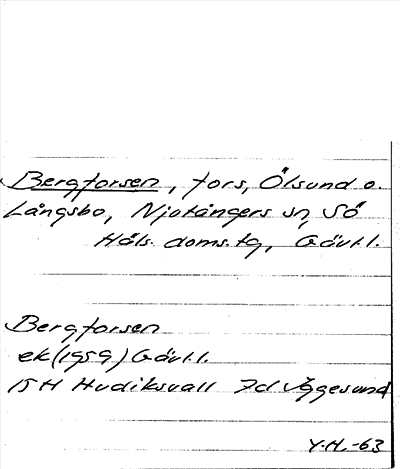 Bergforsen, fors, Ölsund o.
Långsbo, Njutångers sn, Sö
Häls. doms.tg, Gävl.l.
Bergforsen
ek (1959) Gävl.l.
15H Hudiksvall 7d Iggesund
Y.H.-63